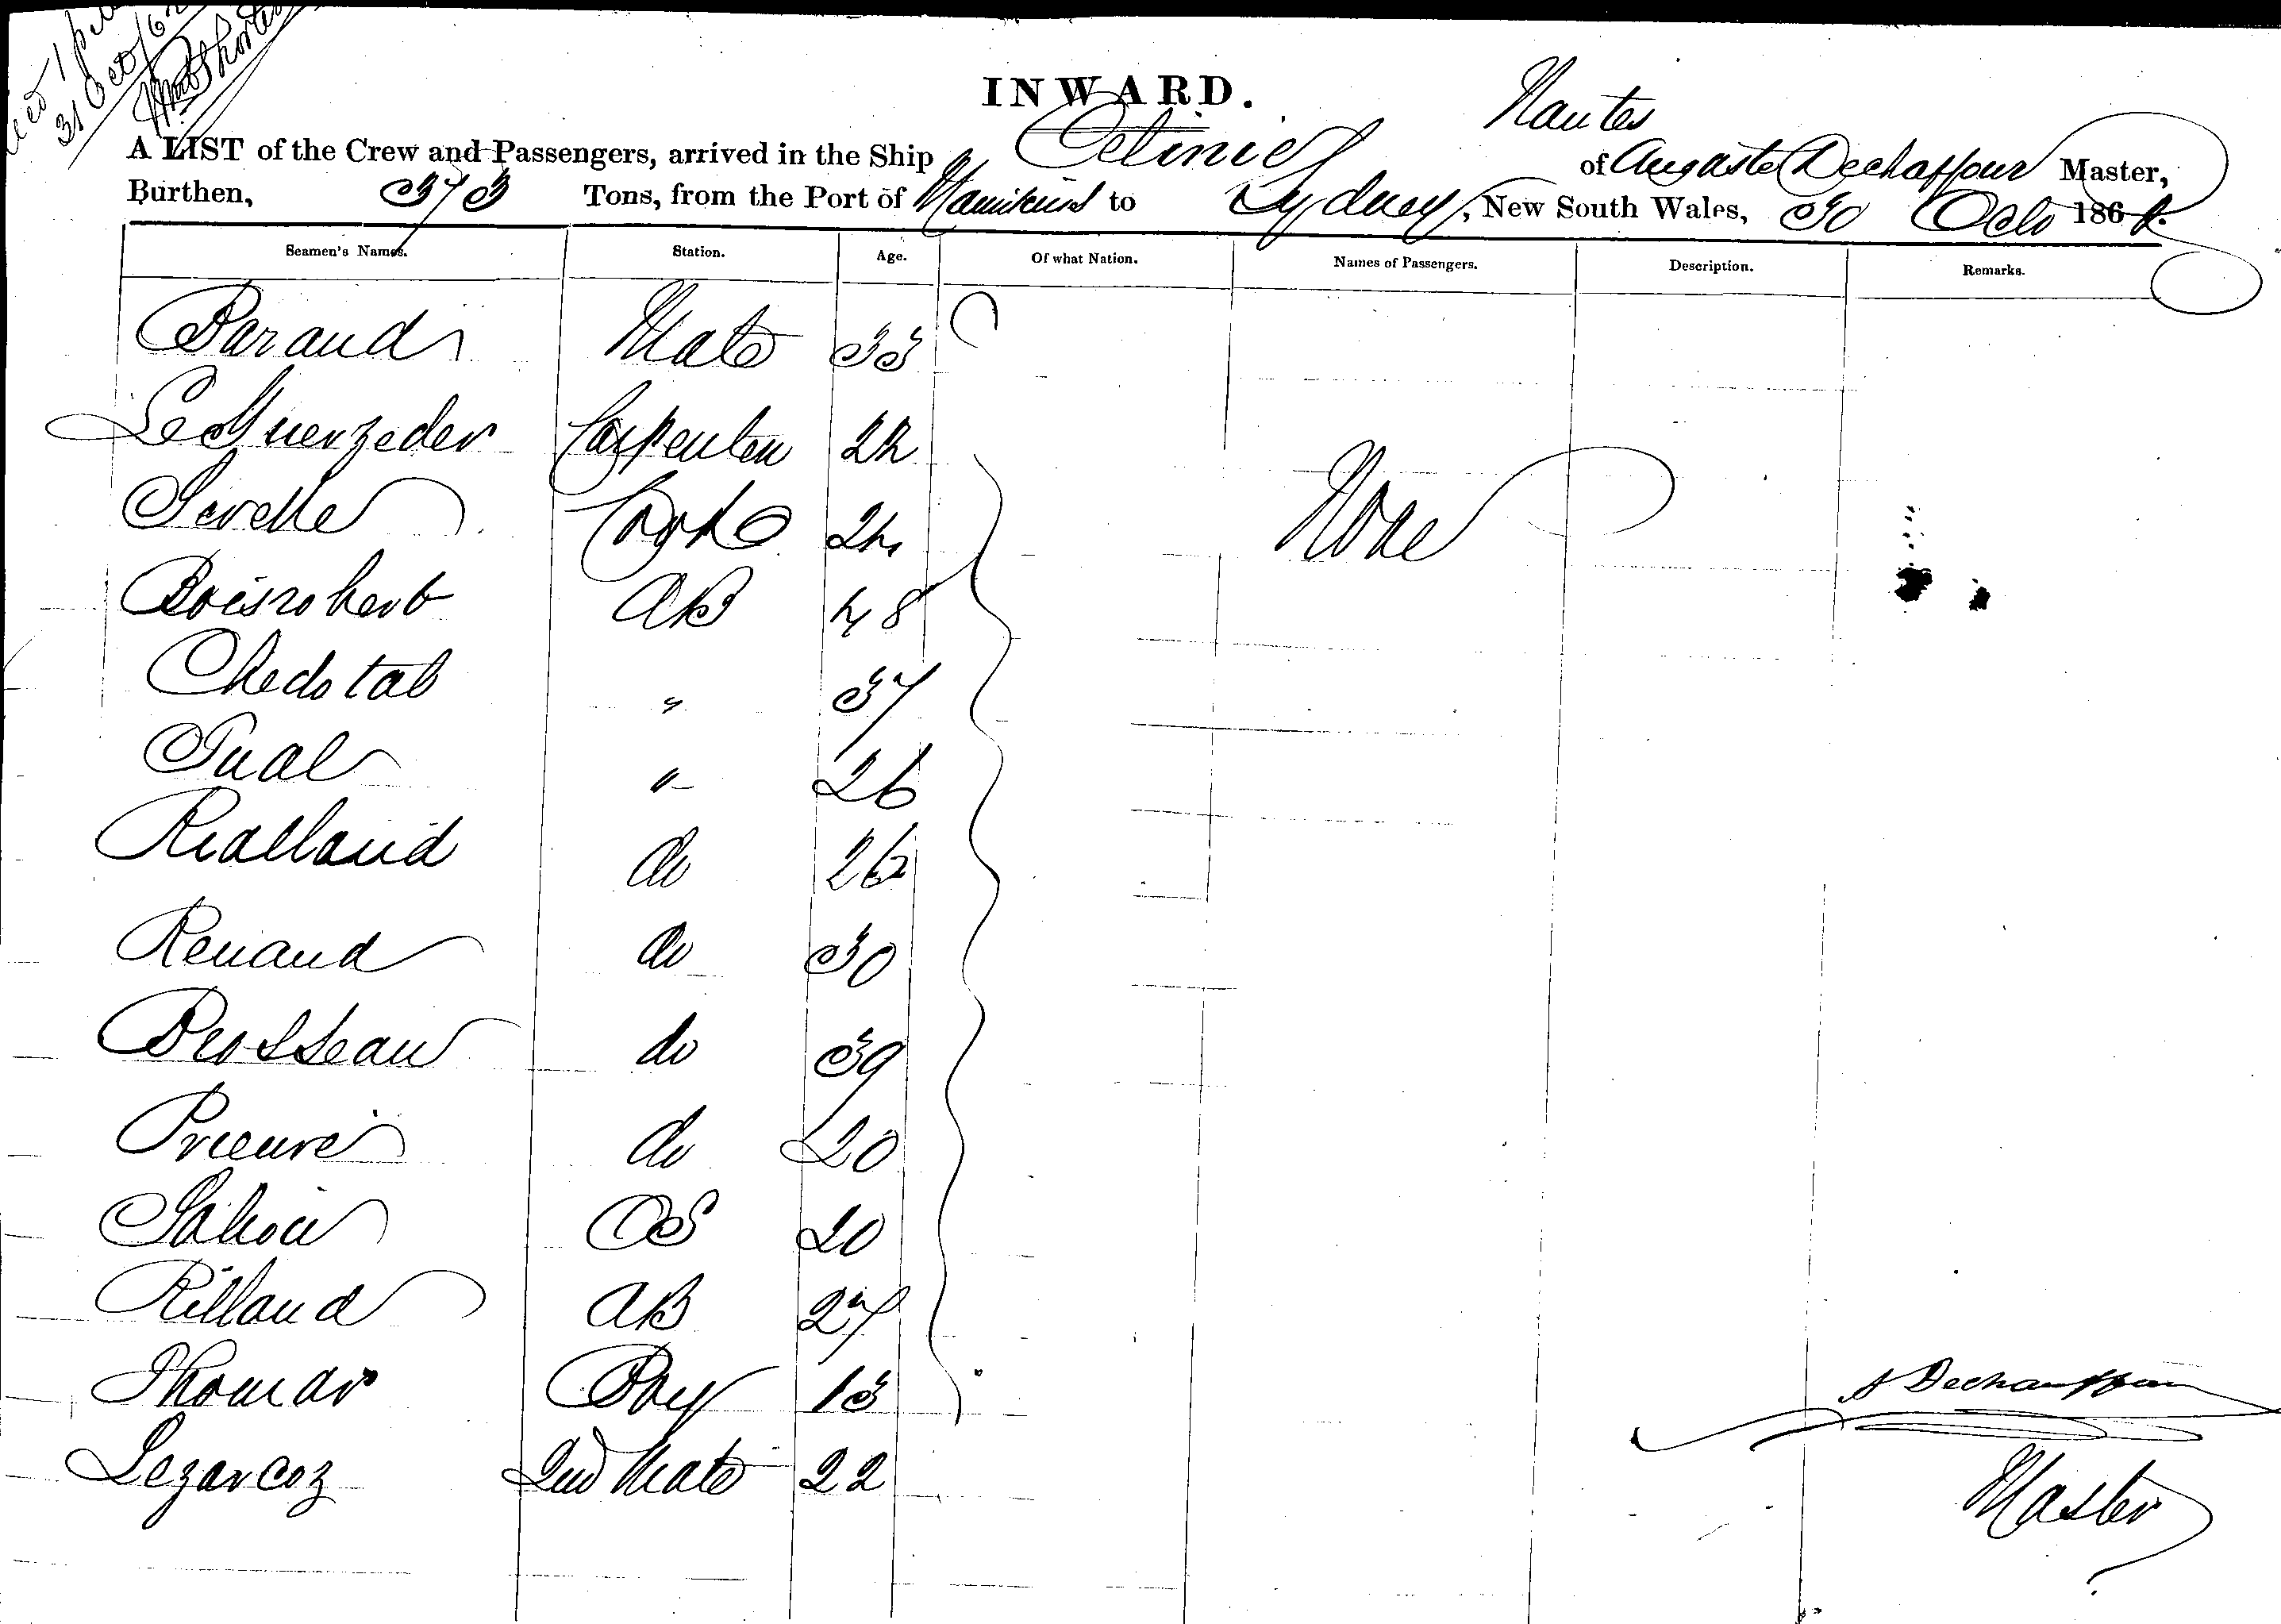 31 Oct/62
INWARD.
Nantes
A LIST of the Crew and Passengers, arrived in the Ship Celinie of Auguste Dechaffour Master,
Burthen, 373 Tons, from the Port of to Sydney, New South Wales, 30 Octo 186
Seamen's Names. Station. Age. Of what Nation. Names of Passengers. Description. Remarks.
Baraud Mate 33
Le Guerzeder Carpenter 22
Serelle Cook 24 None
Boisrobert AB 48
Chedotal " 37
Tual " 26
Rialland do 26
Renaud do 30
Brosseau do 39
Prieuré do 20
Saliou OS 20
Rilland AB 27
Thomas Boy 13
Lezarcoz 2nd Mate 22
A Dechauffour
Master